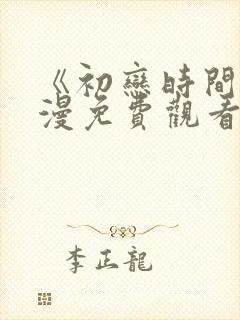 《初戀時間
漫免費觀看
李正龍